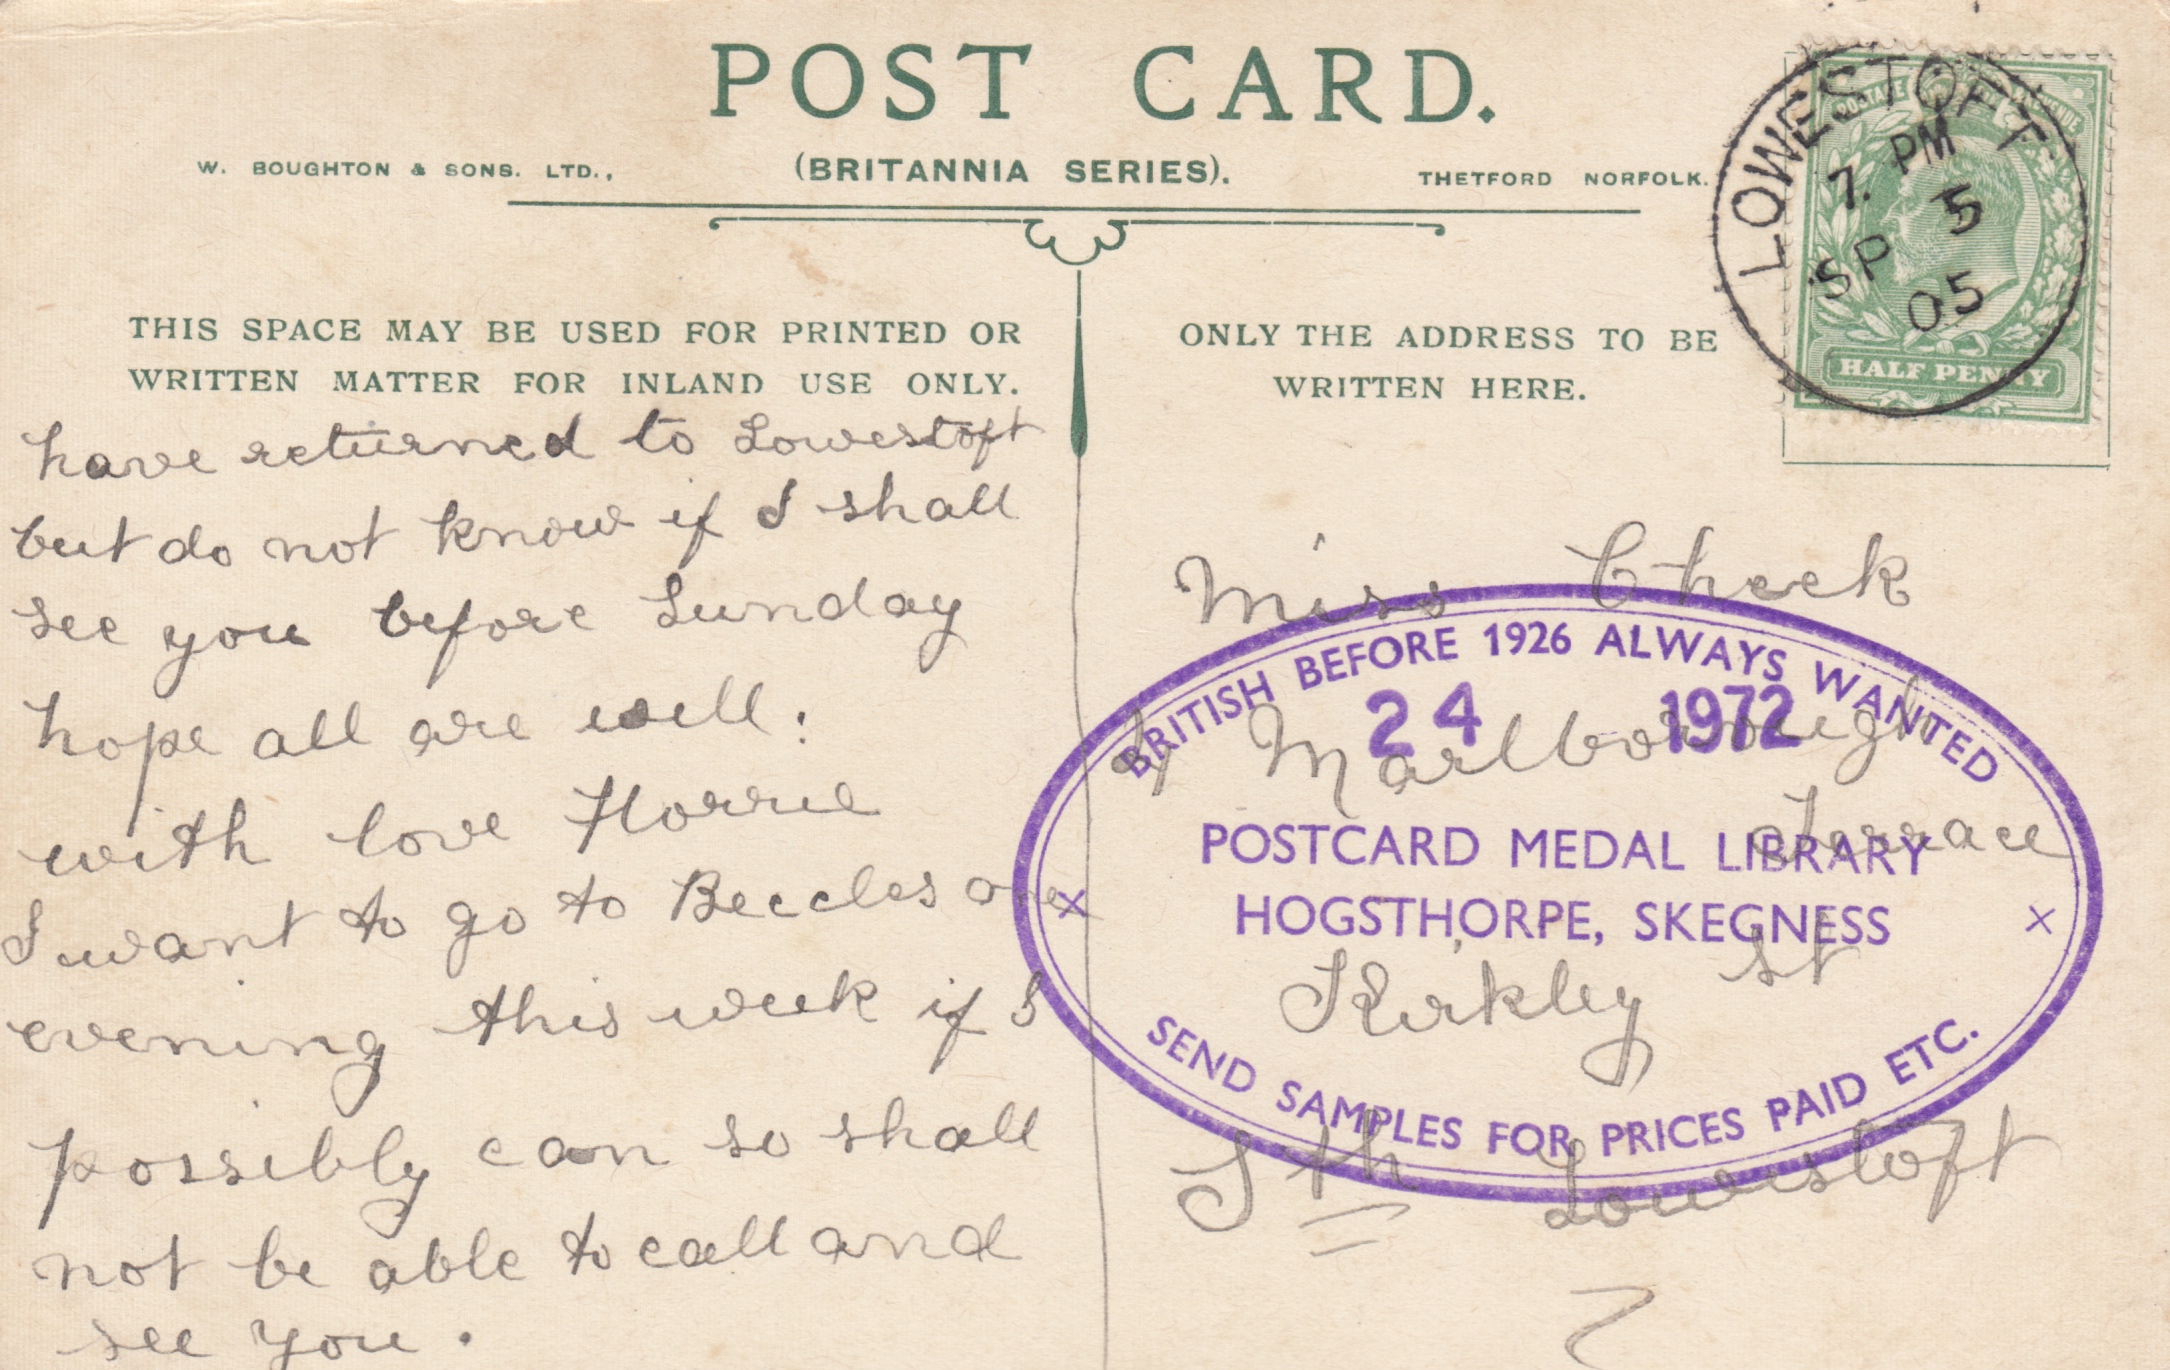 POST CARD.
W. BOUGHTON & SONS. LTD.,
(BRITANNIA SERIES).
THETFORD NORFOLK.
LOWESTOFT
7. PM
SP 5
05
POSTAGE
HALF PENNY
THIS SPACE MAY BE USED FOR PRINTED OR
WRITTEN MATTER FOR INLAND USE ONLY.
have returned to Lowestoft
but do not know if I shall
see you before Sunday
hope all are well.
with love Florrie
I want to go to Beccles one
evening this week if I
possibly can so shall
not be able to call and
see you.
ONLY THE ADDRESS TO BE
WRITTEN HERE.
Miss Cheek
Marlborough
Terrace
Kirkley St
Sth Lowestoft
BRITISH BEFORE 1926 ALWAYS WANTED
24 1972
POSTCARD MEDAL LIBRARY
HOGSTHORPE, SKEGNESS
× ×
SEND SAMPLES FOR PRICES PAID ETC.